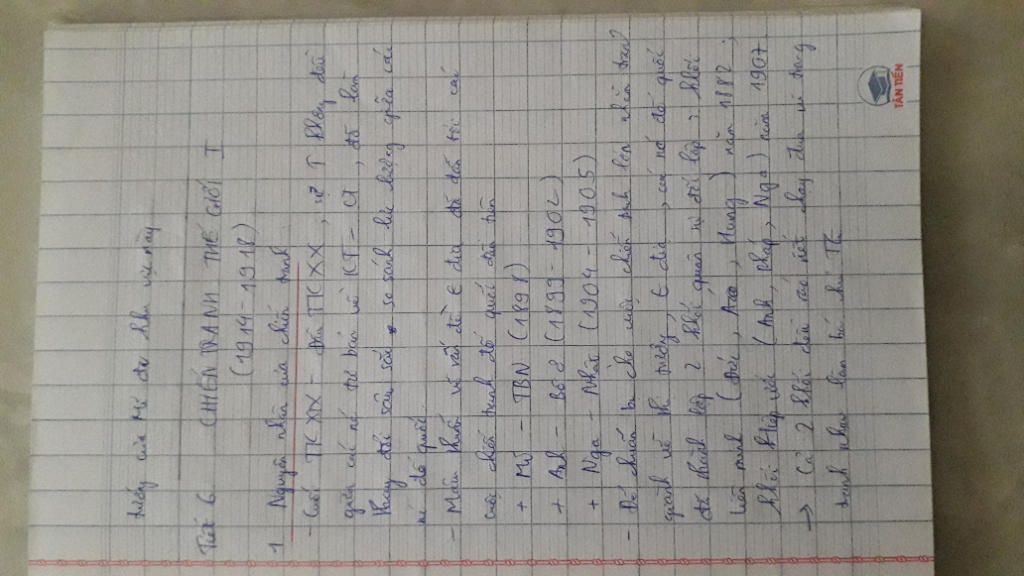 trướng của Mĩ đv khu vực này
Tiết 6. CHIẾN TRANH THẾ GIỚI I
(1914-1918)
1. Nguyên nhân của chiến tranh
- Cuối TK XIX - đầu TK XX, sự T không đều
giữa các nc tư bản về KT - CT, đã làm
thay đổi sâu sắc so sánh lực lượng giữa các
nc đế quốc.
- Mâu thuẫn về vấn đề t địa đã dẫn tới các
cuộc chiến tranh đế quốc đầu tiên
+ Mĩ - TBN (1898)
+ Anh - Bô ơ (1899-1902)
+ Nga - Nhật (1904-1905)
- Để chuẩn bị cho một chiến tranh lớn nhằm tranh
giành về thị trường, t địa, các nc đế quốc
đã thành lập 2 khối quân sự đối lập: khối
liên minh (Đức, Áo, Hung) năm 1882;
khối hiệp ước (Anh, Pháp, Nga) năm 1907.
→ Cả 2 khối đều ráo riết chạy đua vũ trang
tranh nhau làm bá chủ TG
TÂN TIẾN